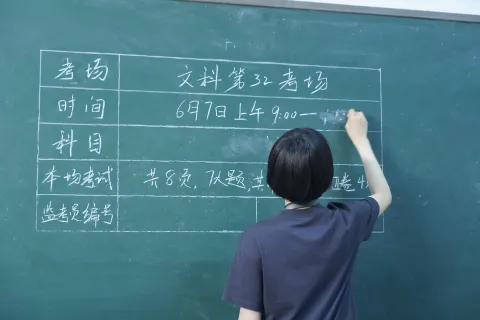 考场 文科第32考场
时间 6月7日上午 9:00—
科目
本场考试 共8页, 大题, 共 卷4
监考员编号